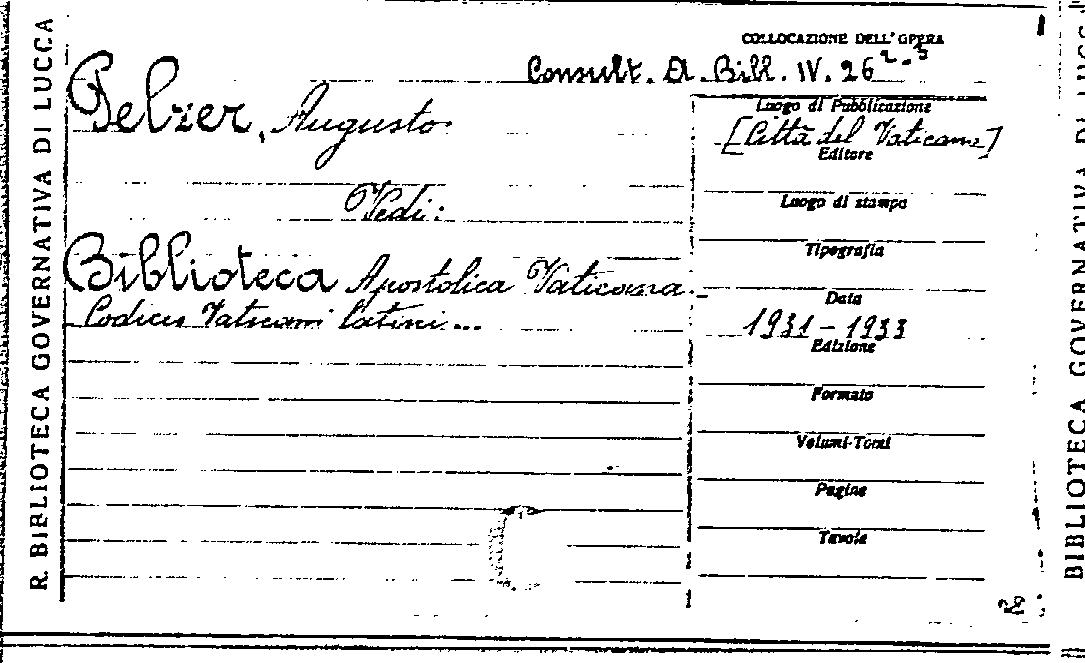 R. BIBLIOTECA GOVERNATIVA DI LUCCA
COLLOCAZIONE DELL'OPERA
Consult. D. Bibl. IV. 26 2-3
Pelzer, Augusto.
Vedi:
Biblioteca Apostolica Vaticana.
Codices Vaticani latini...
Luogo di Pubblicazione
[Città del Vaticano]
Editore
Luogo di stampa
Tipografia
Data
1931-1933
Edizione
Formato
Volumi-Tomi
Pagine
Tavole
BIBLIOTECA GOVERNATIVA DI